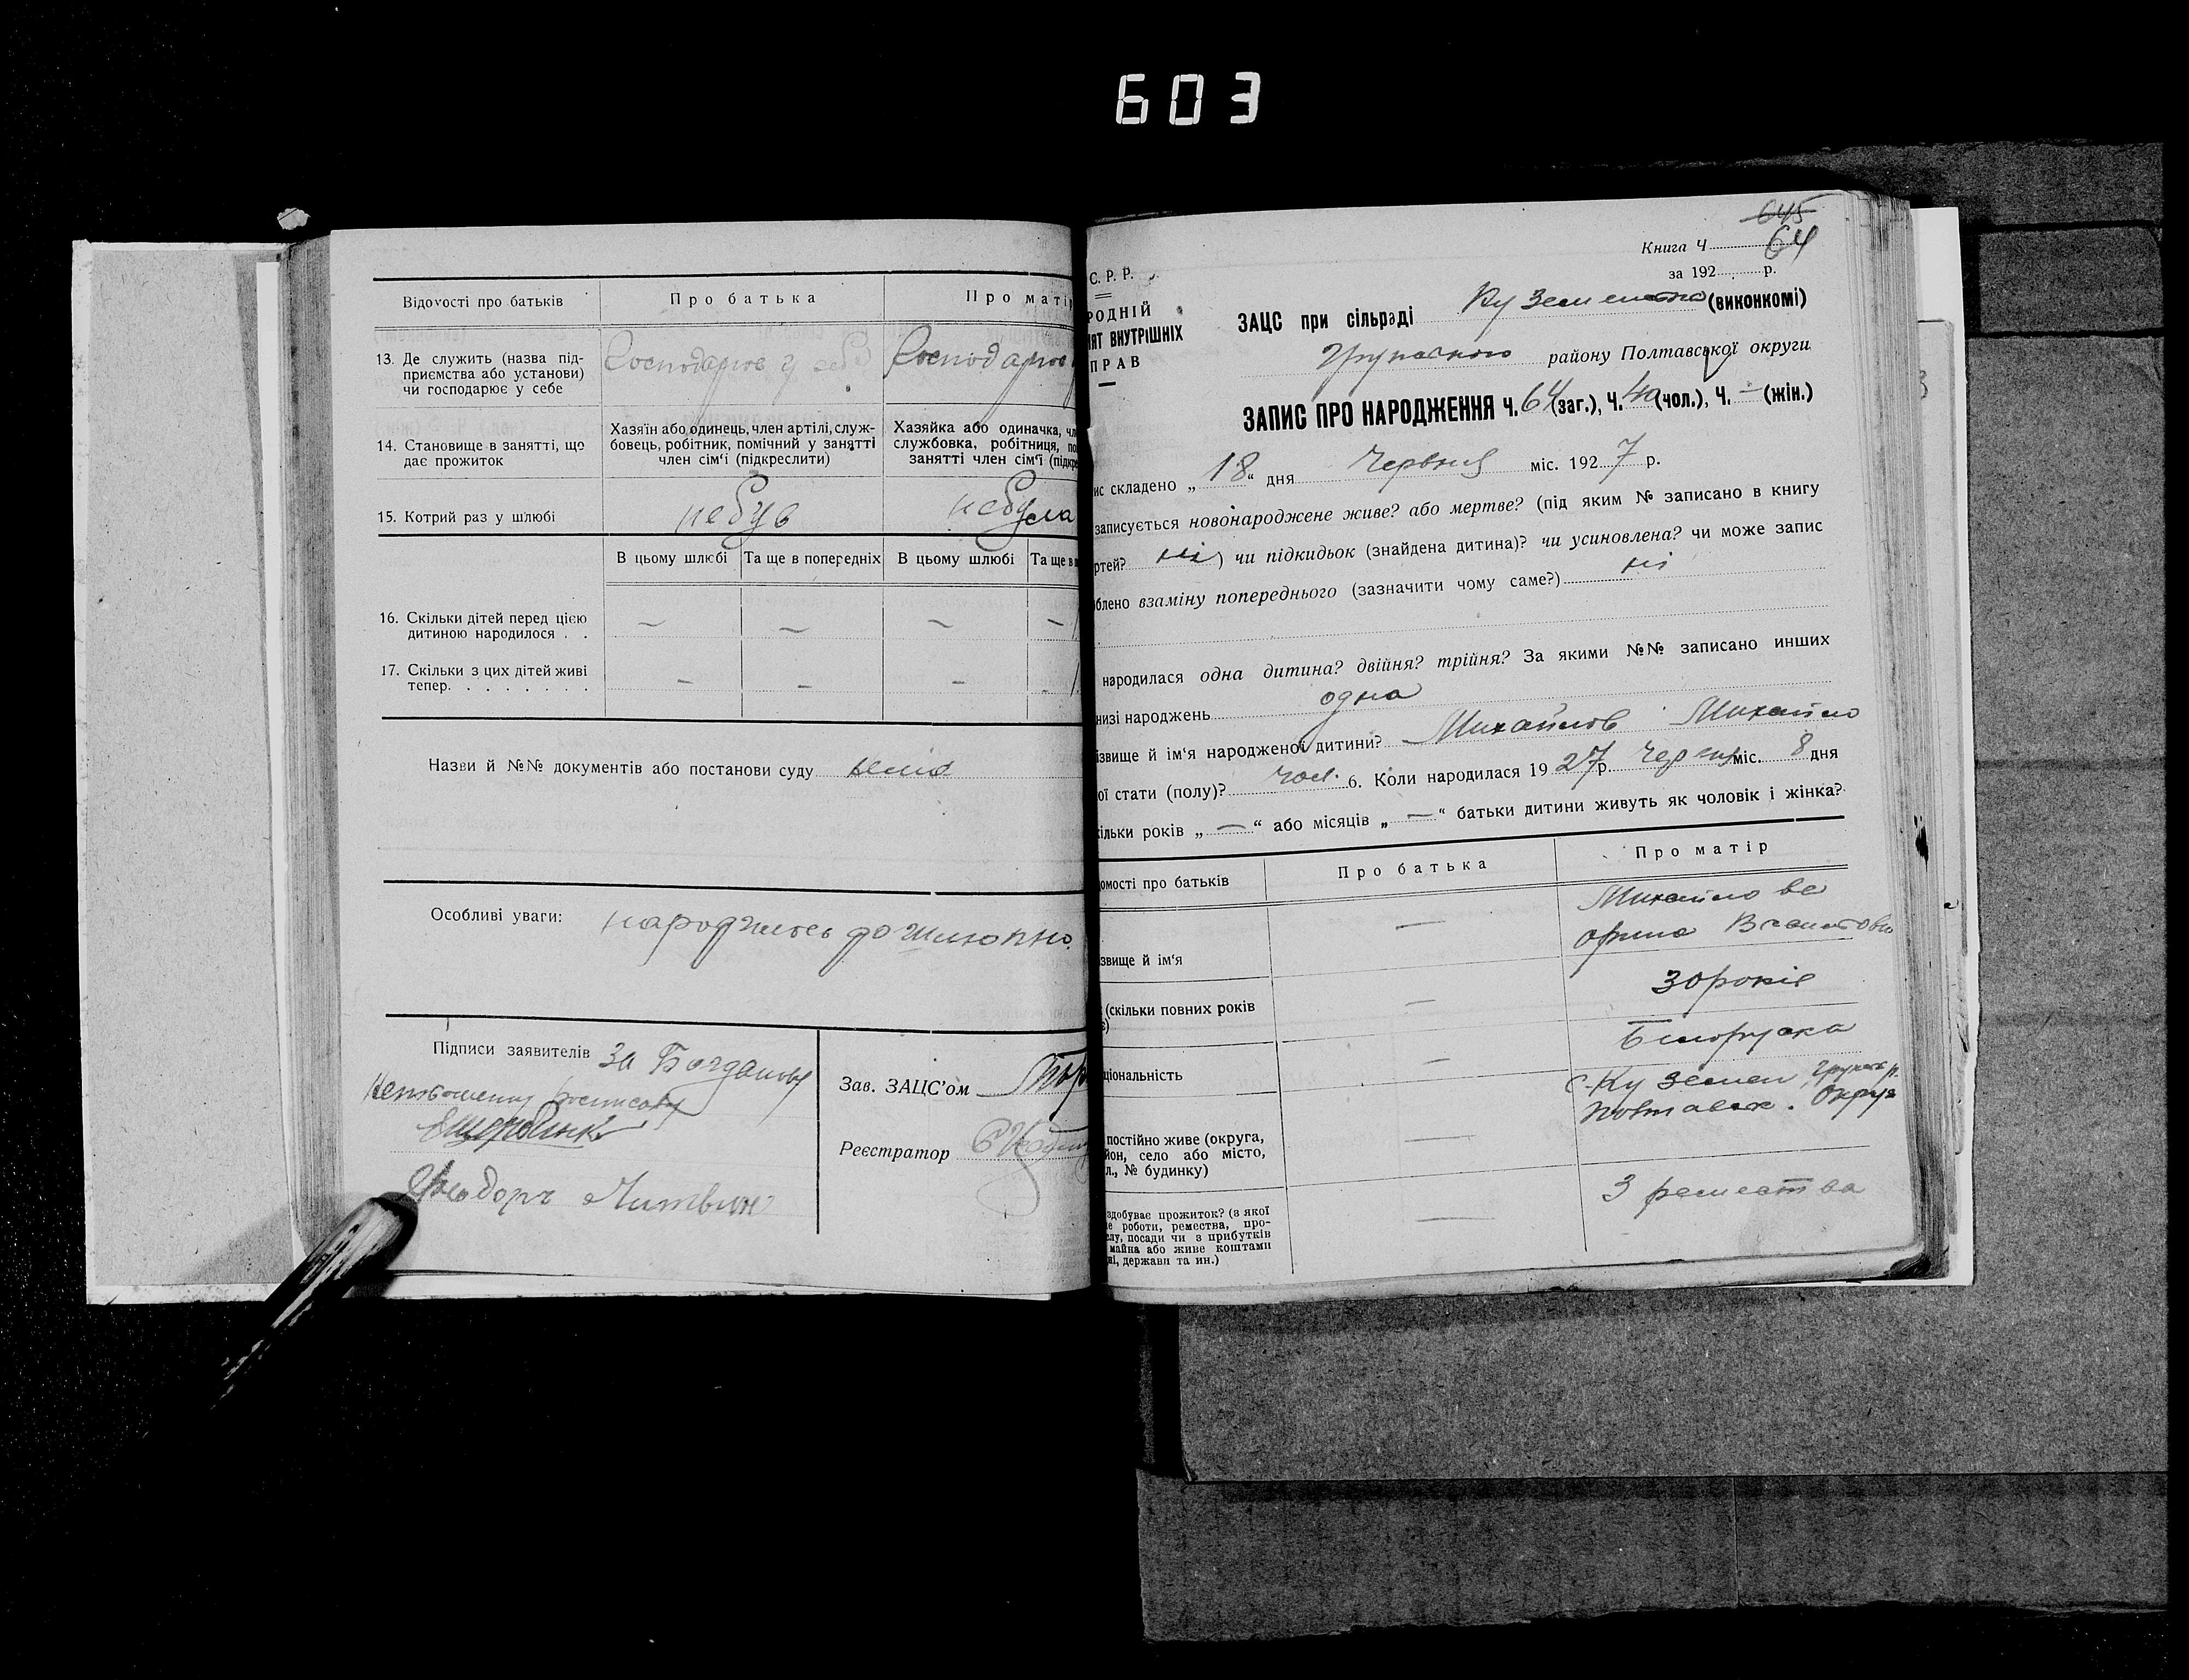 603
Відомості про батьків
Про батька
Про матір
13. Де служить (назва під-
приємства або установи)
чи господарює у себе
Господарює у себе
Господарює
14. Становище в занятті, що
дає прожиток
Хазяїн або одинець, член артілі, служ-
бовець, робітник, помічний у занятті
член сім'ї (підкреслити)
Хазяйка або одиначка, чл
службовка, робітниця, по
занятті член сім'ї (підкре
15. Котрий раз у шлюбі
небув
небула
В цьому шлюбі
Та ще в попередніх
В цьому шлюбі
Та ще в
16. Скільки дітей перед цією
дитиною народилося . .
— — — —
17. Скільки з цих дітей живі
тепер. . . . . . . .
— — — —
Назви й №№ документів або постанови суду
Особливі уваги:
Підписи заявителів За Богданову
неписьменну росписався
Феодоръ Литвин
Зав. ЗАЦС'ом
Реєстратор
645
Книга Ч. 64
за 192 р.
С. Р. Р.
РОДНІЙ
ЯТ ВНУТРІШНІХ
ПРАВ
ЗАЦС при сільраді (виконкомі)
Груньского району Полтавської округи
ЗАПИС ПРО НАРОДЖЕННЯ ч. 64 (заг.), Ч. (чол.), Ч. — (жін.)
ис складено „ 18 “ дня Червня міс. 1927 р.
записується новонароджене живе? або мертве? (під яким № записано в книгу
ртей? ні ) чи підкидьок (знайдена дитина)? чи усиновлена? чи може запис
блено взаміну попереднього (зазначити чому саме?) ні
народилася одна дитина? двійня? трійня? За якими №№ записано инших
низі народжень одна
ізвище й ім'я народженої дитини? Михайлов Михайло
ої стати (полу)? чол. 6. Коли народилася 1927 р. червня міс. 8 дня
кільки років „ — “ або місяців „ — “ батьки дитини живуть як чоловік і жінка?
омості про батьків
Про батька
Про матір
звище й ім'я
—
Михайлова
Орина
(скільки повних років
—
30 років
ціональність
—
Білоруска
постійно живе (округа,
йон, село або місто,
л., № будинку)
—
с-Куземен Груньск р.
Полтавск. Округи
здобуває прожиток? (з якої
е роботи, ремества, про-
слу, посади чи з прибутків
майна або живе коштами
ні, держави та ин.)
—
З ремества